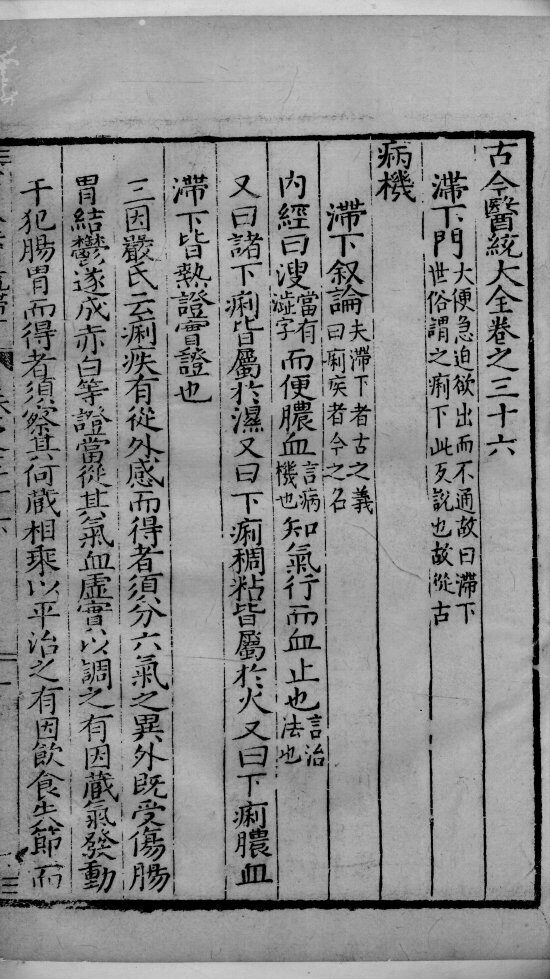 古今醫統大全卷之三十六
滯下門大便急迫欲出而不通故曰滯下世俗謂之痢下此歹説也故從古
病機
滯下叙論夫滯下者古之義曰痢疾者今之名
内經曰溲當有澁字而便膿血言病機也知氣行而血止也言治法也
又曰諸下痢皆屬於濕又曰下痢稠粘皆屬於火又曰下痢膿血
滯下皆熱證實證也
三因嚴氏云痢疾有從外感而得者須分六氣之異外既受傷腸
胃結鬱遂成赤白等證當從其氣血虛實以調之有因藏氣發動
干犯腸胃而得者須察其何藏相乘以平治之有因飲食失節而